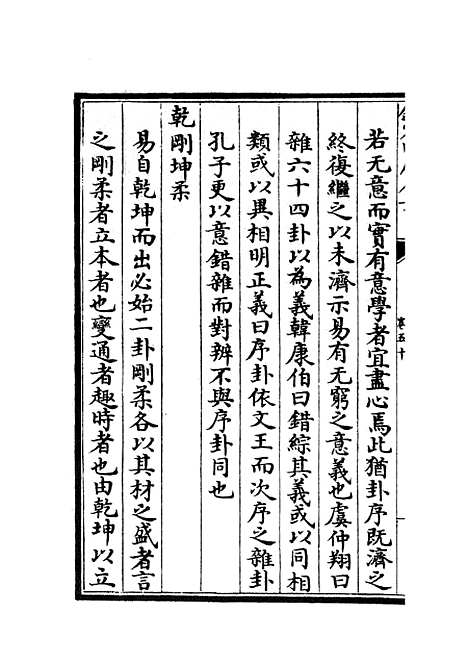 若无意而實有意學者宜盡心焉此猶卦序既濟之
終復繼之以未濟示易有无窮之意義也虞仲翔曰
雜六十四卦以為義韓康伯曰錯綜其義或以同相
類或以異相明正義曰序卦依文王而次序之雜卦
孔子更以意錯雜而對辨不與序卦同也
乾剛坤柔
易自乾坤而出必始二卦剛柔各以其材之盛者言
之剛柔者立本者也變通者趣時者也由乾坤以立
卷五十